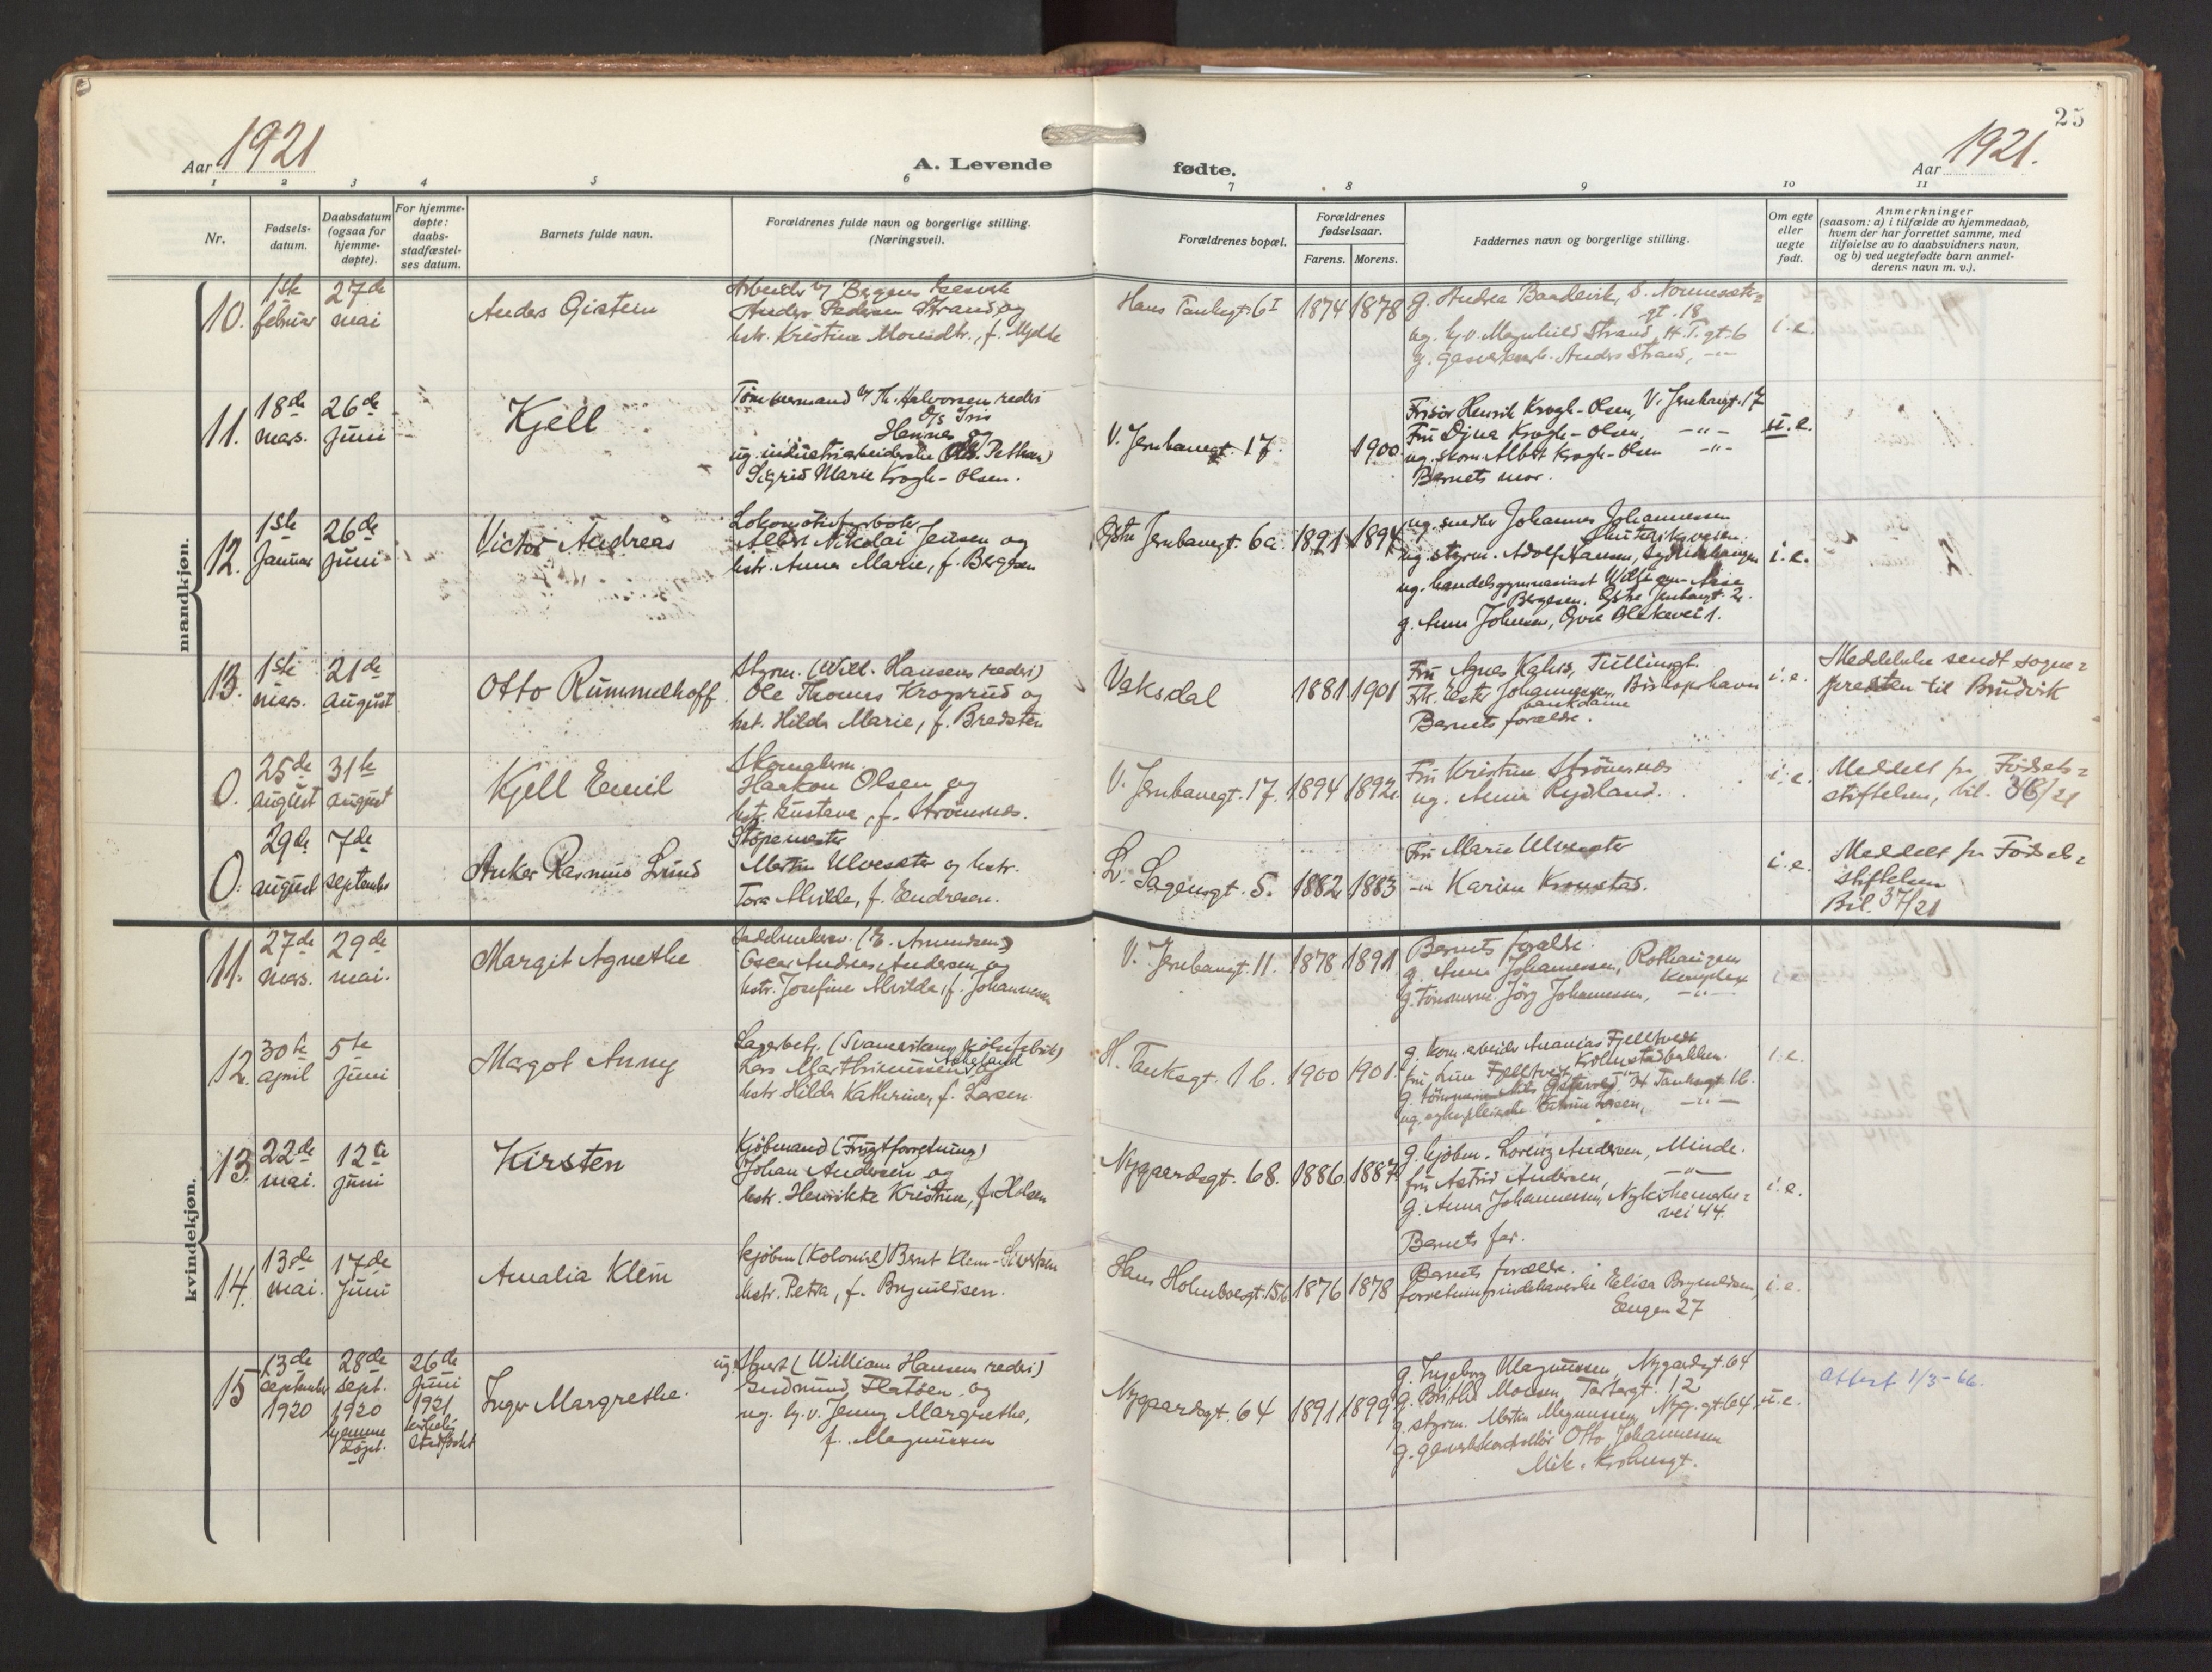 25
Aar 1921
A. Levende fødte.
Aar 1921.
1 2 3 4 5 6 7 8 9 10 11
Nr.
Fødsels-
datum.
Daabsdatum
(ogsaa for
hjemme-
døpte).
For hjemme-
døpte:
daabs-
stadfæstel-
ses datum.
Barnets fulde navn.
Forældrenes fulde navn og borgerlige stilling.
(Næringsvei).
Forældrenes bopæl.
Forældrenes
fødselsaar.
Farens. Morens.
Faddernes navn og borgerlige stilling.
Om egte
eller
uegte
født.
Anmerkninger
(saasom: a) i tilfælde av hjemmedaab,
hvem der har forrettet samme, med
tilføielse av to daabsvidners navn,
og b) ved uegtefødte barn anmel-
derens navn m. v.).
mandkjøn.
10.
1ste
februar
27de
mai
Anders Qistein
Arbeider v/ Bergens Gasverk
Anders Pedersen Strand og
hstr. Kristine Monsdtr., f. Mydde
Hans Tanksgt. 6 I
1874 1878
g. Andrea Bandevik, S.
gt. 18
ug. hj.v. Magnhild Strand, H.T.gt. 6
g. gasverksarb. Anders Strand, -"-
i.e.
11.
18de
mars.
26de
juni
Kjell
Tømmermand v/ Th. Halvorsen rederi
D/s Iris
Hannes og
ug. industriarbeiderske
Sigrid Marie Krogh-Olsen.
V. Jernbanegt. 17.
1900.
Frisør Henrik Krogh-Olsen, V. Jernbangt. 17
Fru Dina Krogh-Olsen, -"-
ug. skom. Albert Krogh-Olsen -"-
Barnets mor.
u.e.
12.
1ste
Januar
26de
juni
Victor Andreas
Lokomotivfyrbøter
Albert Nikolai Jensen og
hstr. Anna Marie, f. Bergesen
Østre Jernbanegt. 6a
1891 1894
ug. smed Johannes Johannessen
ug. styrm. Adolf Hansen, Sydneshaugen
ug. handelsgymnasiast William
Bergesen, Østre Jernbangt. 2.
g. Anna Johnsen, Øvre Blekevei 1.
i.e.
13.
1ste
mars.
21de
august
Otto Rummelhoff
Styrm. (Will. Hansens rederi)
Ole Thomas Krogsrud og
hst. Hilda Marie, f. Bredsten
Vaksdal
1881 1901
Fru Agnes Kahrs, Tullinsgt.
Frk. Ester Johannessen, Biskopshavn
bankdame
Barnets forældre.
i.e.
Meddelelse sendt sogne=
presten til Bruvik
0.
25de
august
31te
august
Kjell Emil
Skomakerm.
Haakon Olsen og
hst. Gustava, f. Strømsnes.
V. Jernbanegt. 17.
1894 1892
Fru Kristine Strømsnes
ug. Anna Rydland.
i.e.
Meddelt fra Fødsels=
stiftelsen, bil. 36/21
0.
29de
august
7de
september
Anker Rasmus Lund
Støpemester
Martin Ulvesæter og hstr.
Tora Alvilde, f. Endresen.
L. Sagensgt. 5.
1882 1883
Fru Marie Ulvesæter
-"- Karine Kronstad.
i.e.
Meddelt fra Fødsels=
stiftelsen
Bil. 37/21
kvindekjøn.
11.
27de
mars.
29de
mai.
Margit Agnethe
Sadelmakersv. (E. Amundsen)
Oscar Andreas Andersen og
hstr. Josefine Alvilde, f. Johannessen
V. Jernbanegt. 11.
1878 1891
Barnets forældre.
g. Anna Johannessen, Rothaugens
Kompleks
g. tømmerm. Jörg Johannessen, -"-
i.e.
12.
30te
april
5te
juni
Margot Anny
Lagerbetj. (Svanevikens Mølnefabrik)
Askeland
Lars Marthinussen og
hstr. Hilda Kathrine, f. Larsen.
H. Tanksgt. 1 b.
1900 1901.
g. kom. arbeider Ananias Fjelltvedt
fru Lina Fjelltveit, Kolmstadbakken.
g. tømmermand Nils H Tanksgt 1b.
ug. Larsen, -"-
i.e.
13.
22de
mai.
12te
juni
Kirsten
Kjøbmand (Frugtforretning)
Johan Andersen og
hstr. Henrikke Kristine, f. Holsen
Nygaardsgt. 68.
1886. 1887
g. kjøbm. Lorenz Andersen, Minde.
fru Astrid Andersen, -"-
g. Anna Johannessen, Nykirkemarke=
vei 44.
Barnets far.
i.e.
14.
13de
mai.
17de
juni
Amalia Klem
kjøbm (Kolonial) Bernt Klem-Sivertsen
hstr. Petra, f. Brynildsen.
Hans Holmboesgt. 15 b.
1876 1878
Barnets forældre.
forretningsindehaverske Elisa Brynildsen,
Engen 27
i.e.
15
13de
september
1920
28de
sept.
1920
hjemme
døpt.
26de
juni
1921
kirkelig
stadfæstet
Inger Margrethe.
ug. Stuert (William Hansens rederi)
Gudmund Flatøen og
ug. hj.v. Jenny Margrethe,
f. Magnussen
Nygaardsgt. 64
1891 1899
g. Ingeborg Magnussen, Nygaardsgt. 64
g. Brithe Monsen, Tartargt. 12
g. styrm. Martin Magnussen, Nyg.gt. 64
g. gasverkskontrollør Otto Johannessen
Mik. Krohnsgt.
u.e.
Attest 1/3-66.